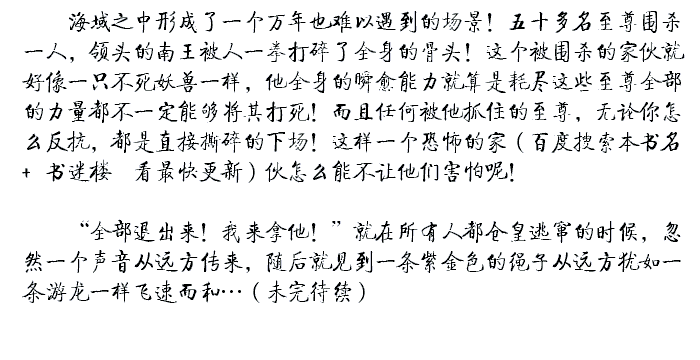 海域之中形成了一个万年也难以遇到的场景！五十多名至尊围杀
一人，领头的南王被人一拳打碎了全身的骨头！这个被围杀的家伙就
好像一只不死妖兽一样，他全身的瞬愈能力就算是耗尽这些至尊全部
的力量都不一定能够将其打死！而且任何被他抓住的至尊，无论你怎
么反抗，都是直接撕碎的下场！这样一个恐怖的家（百度搜索本书名
+ 书迷楼 看最快更新）伙怎么能不让他们害怕呢！
“全部退出来！我来拿他！”就在所有人都仓皇逃窜的时候，忽
然一个声音从远方传来，随后就见到一条紫金色的绳子从远方犹如一
条游龙一样飞速而和…（未完待续）